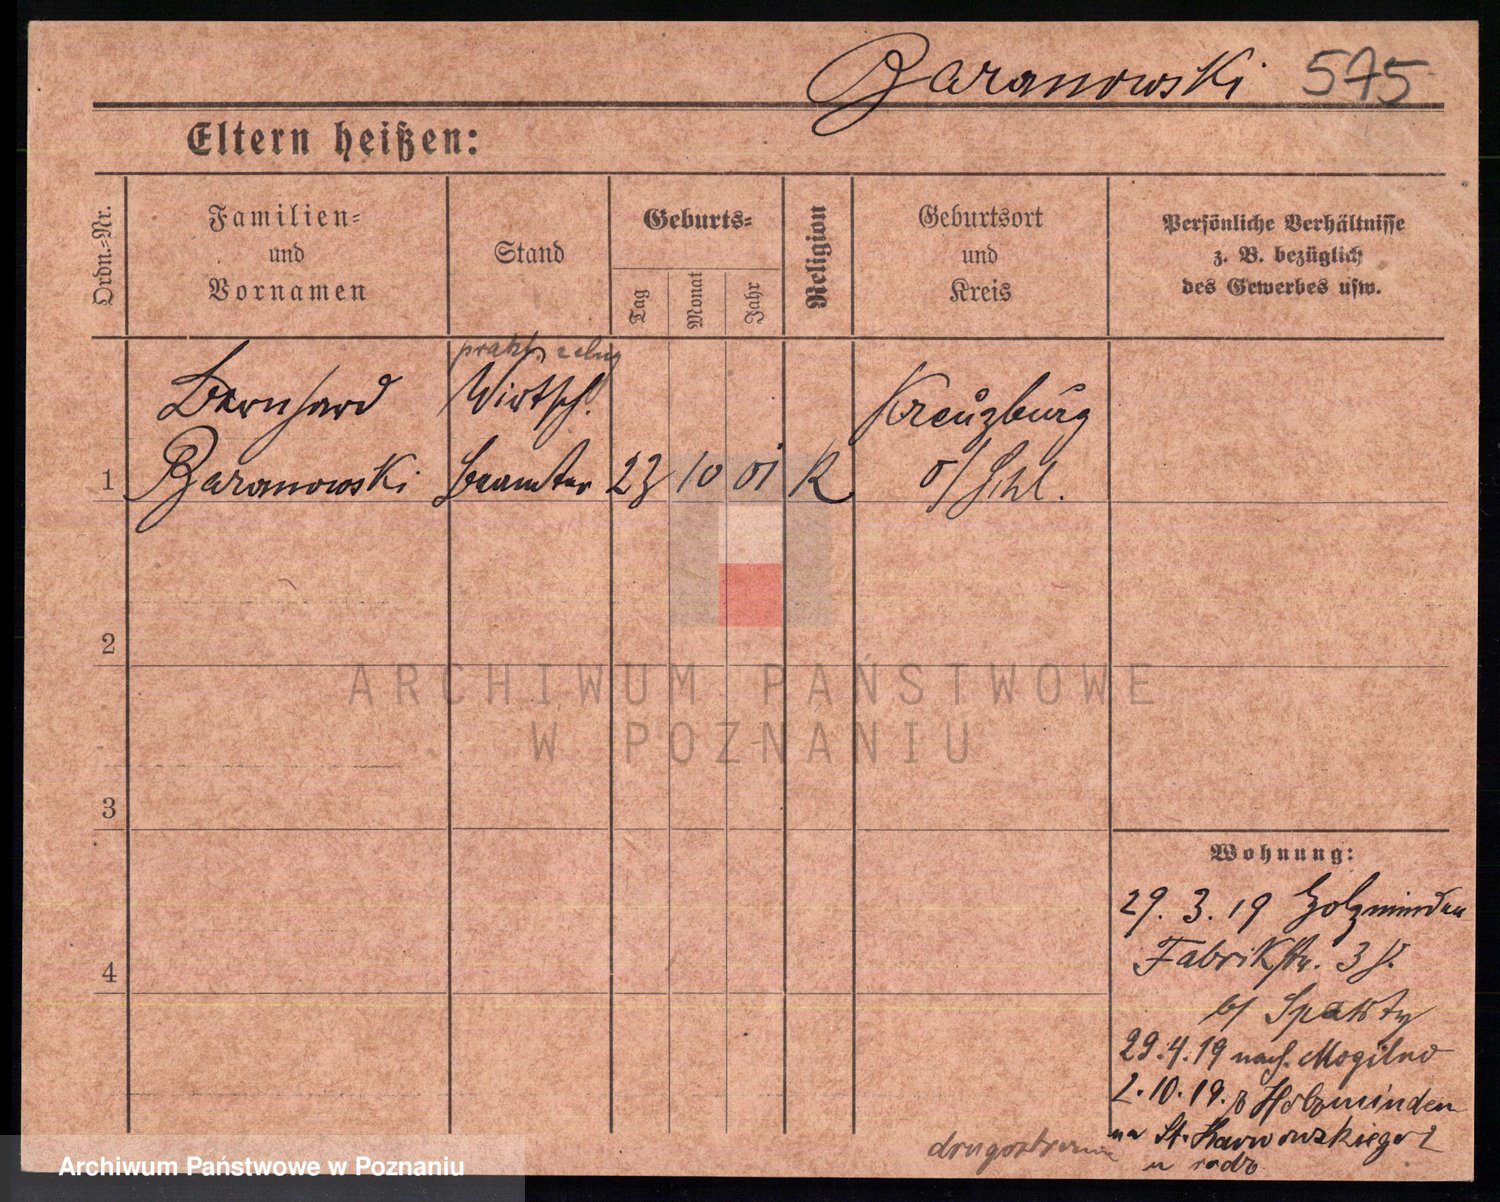 Baranowski 575
Eltern heißen:
Ordn.-Nr.
Familien-
und
Vornamen
Stand
Geburts-
Tag
Monat
Jahr
Religion
Geburtsort
und
Kreis
Persönliche Verhältnisse
z. B. bezüglich
des Gewerbes usw.
prakt.
Bernhard
Wirtsch.
Kreuzburg
1 Baranowski beamter 23 10 01 K
o/Schl.
2
ARCHIWUM PAŃSTWOWE
W POZNANIU
3
Wohnung:
29. 3. 19 Holzminden
4 Fabrikstr. 3
b/
29.4.19 nach Mogilno
2.10.19. z Holzminden
na St. Karwowskiego 2
u rodz.
Archiwum Państwowe w Poznaniu